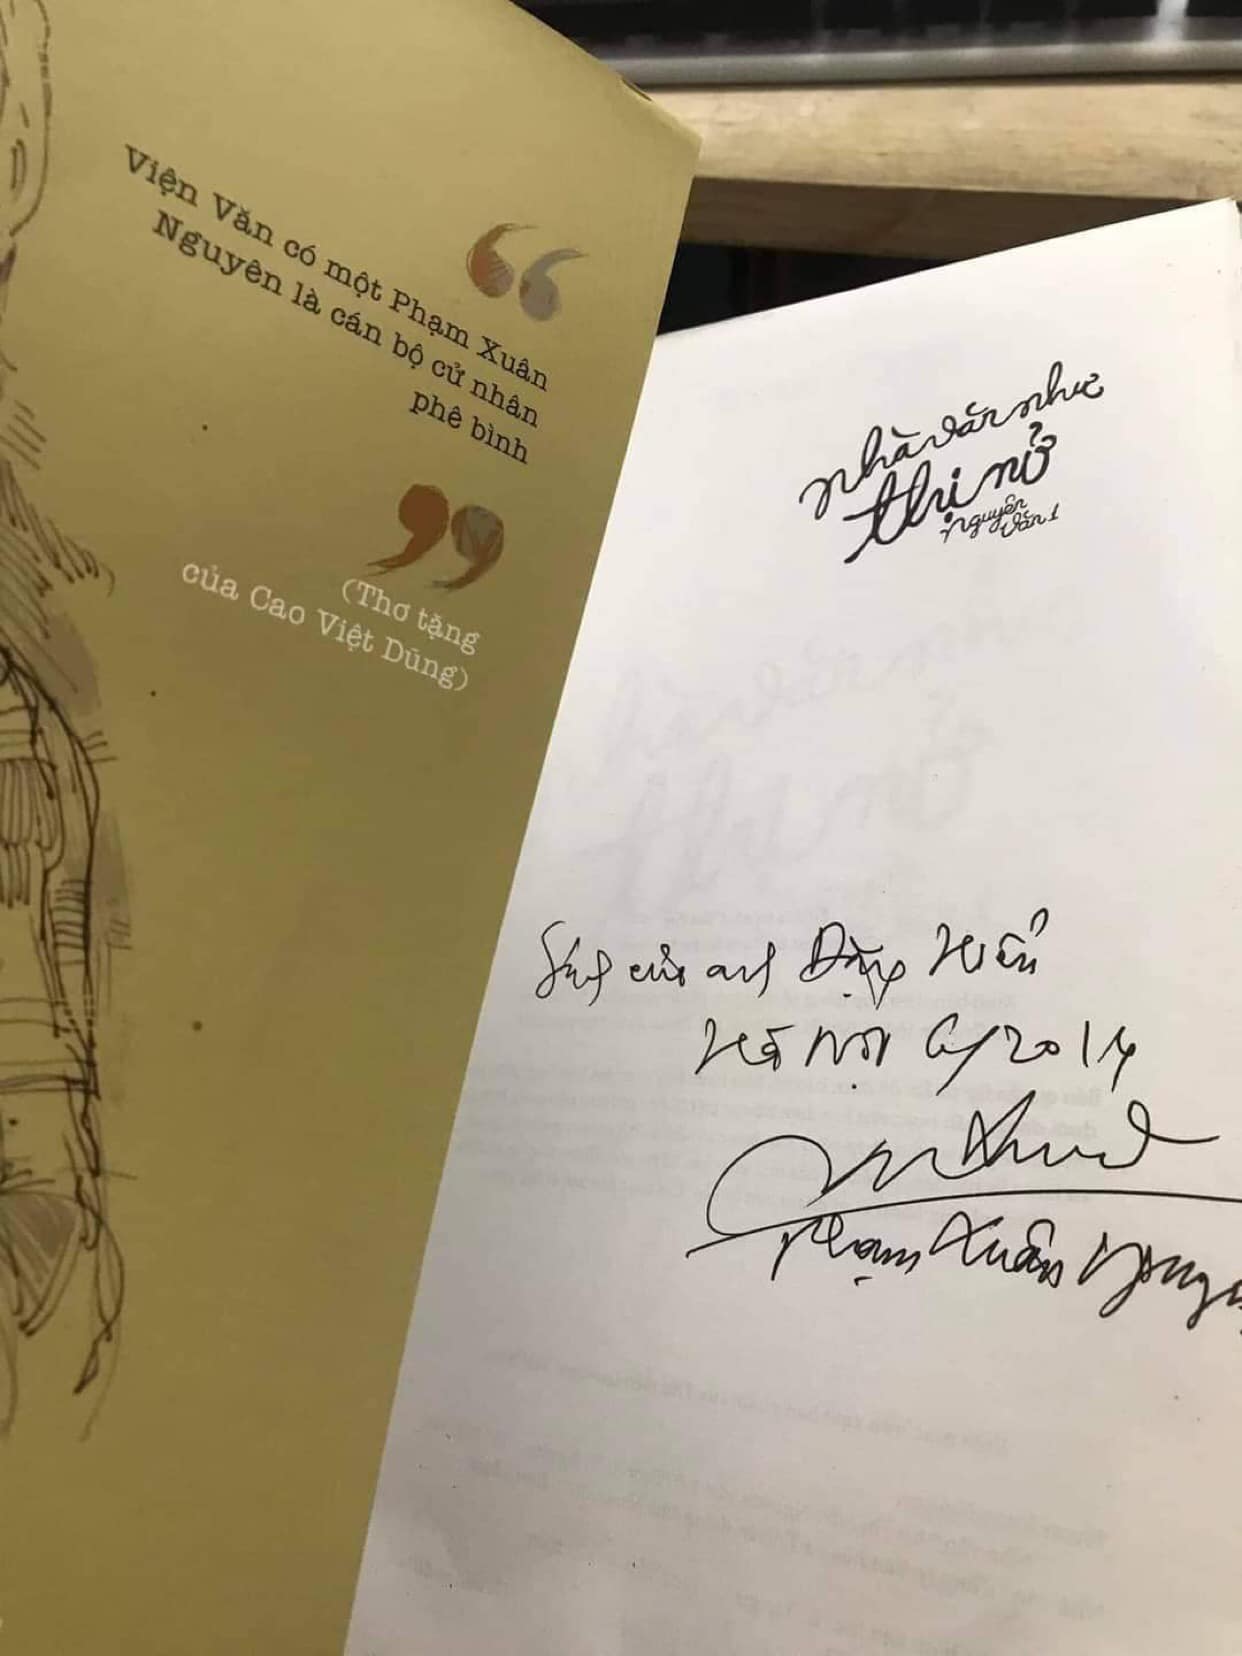 Viện Văn có một Phạm Xuân
Nguyên là cán bộ cử nhân
phê bình
(Thơ tặng
của Cao Việt Dũng)
nhà văn như
thị nở
nguyên
văn 1
Sách của anh Đặng Hiển
Hà Nội 2014
Phạm Xuân Nguyê